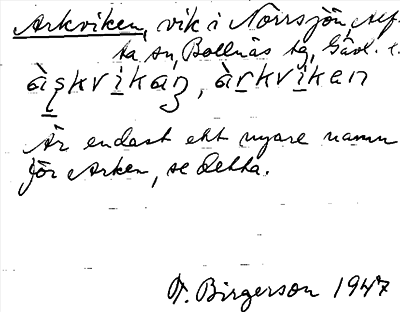 Arkviken, vik i Norrsjön, Alf-
ta sn, Bollnäs tg, Gävl. l.
àşkvikaȵ, àrkvíken
Är endast ett nyare namn
för Arken, se detta.
T. Birgerson 1947